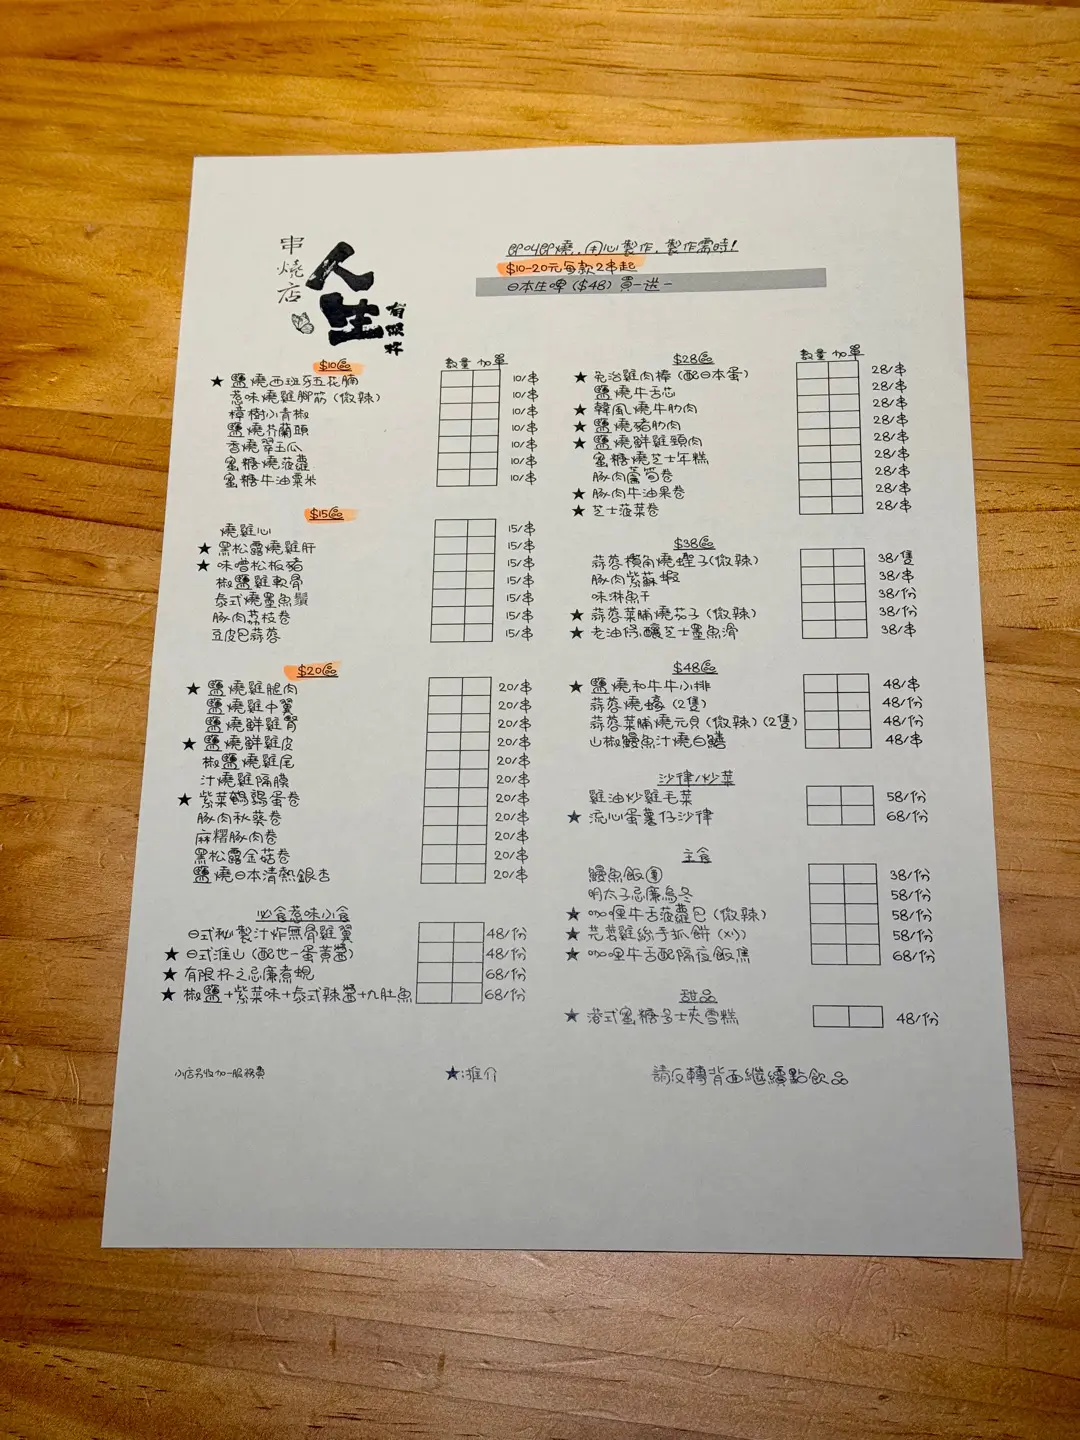 串燒店
人生
有限杯
即叫即燒，用心製作，製作需時！
$10-20元每款2串起
日本生啤 ($48) 買一送一
$10區 數量 加單
★ 鹽燒西班牙五花腩 10/串
惹味燒雞腳筋 (微辣) 10/串
樟樹小青椒 10/串
鹽燒芥蘭頭 10/串
香燒翠玉瓜 10/串
蜜糖燒菠蘿 10/串
蜜糖牛油粟米 10/串
$15區
燒雞心 15/串
★ 黑松露燒雞肝 15/串
★ 味噌松板豬 15/串
椒鹽雞軟骨 15/串
泰式燒墨魚鬚 15/串
豚肉荔枝卷 15/串
豆皮巴蒜蓉 15/串
$20區
★ 鹽燒雞腿肉 20/串
鹽燒雞中翼 20/串
鹽燒鮮雞腎 20/串
★ 鹽燒鮮雞皮 20/串
椒鹽燒雞尾 20/串
汁燒雞隔膜 20/串
★ 紫菜鵪鶉蛋卷 20/串
豚肉秋葵卷 20/串
麻糬豚肉卷 20/串
黑松露金菇卷 20/串
鹽燒日本清熱銀杏 20/串
必食惹味小食
日式秘製汁炸無骨雞翼 48/份
★ 日式淮山 (配世一蛋黃醬) 48/份
★ 有限杯之忌廉煮蜆 68/份
★ 椒鹽+紫菜味+泰式辣醬+九肚魚 68/份
小店另收加一服務費
★:推介
$28區 數量 加單
★ 免治雞肉棒 (配日本蛋) 28/串
鹽燒牛舌芯 28/串
★ 韓風燒牛肋肉 28/串
★ 鹽燒豬肋肉 28/串
★ 鹽燒鮮雞頸肉 28/串
蜜糖燒芝士年糕 28/串
豚肉蘆筍卷 28/串
★ 豚肉牛油果卷 28/串
★ 芝士菠菜卷 28/串
$38區
蒜蓉欖角燒蟶子 (微辣) 38/隻
豚肉紫蘇蝦 38/串
味淋魚干 38/份
★ 蒜蓉菜脯燒茄子 (微辣) 38/份
★ 老油條釀芝士墨魚滑 38/串
$48區
★ 鹽燒和牛牛小排 48/串
蒜蓉燒蠔 (2隻) 48/份
蒜蓉菜脯燒元貝 (微辣) (2隻) 48/份
山椒鰻魚汁燒白鱔 48/串
沙律/炒菜
雞油炒雞毛菜 58/份
★ 流心蛋薯仔沙律 68/份
主食
鰻魚飯團 38/份
明太子忌廉烏冬 58/份
★ 咖喱牛舌菠蘿包 (微辣) 58/份
★ 芫荽雞絲手抓餅 (凍) 58/份
★ 咖喱牛舌配隔夜飯焦 68/份
甜品
★ 港式蜜糖多士夾雪糕 48/份
請反轉背面繼續點飲品